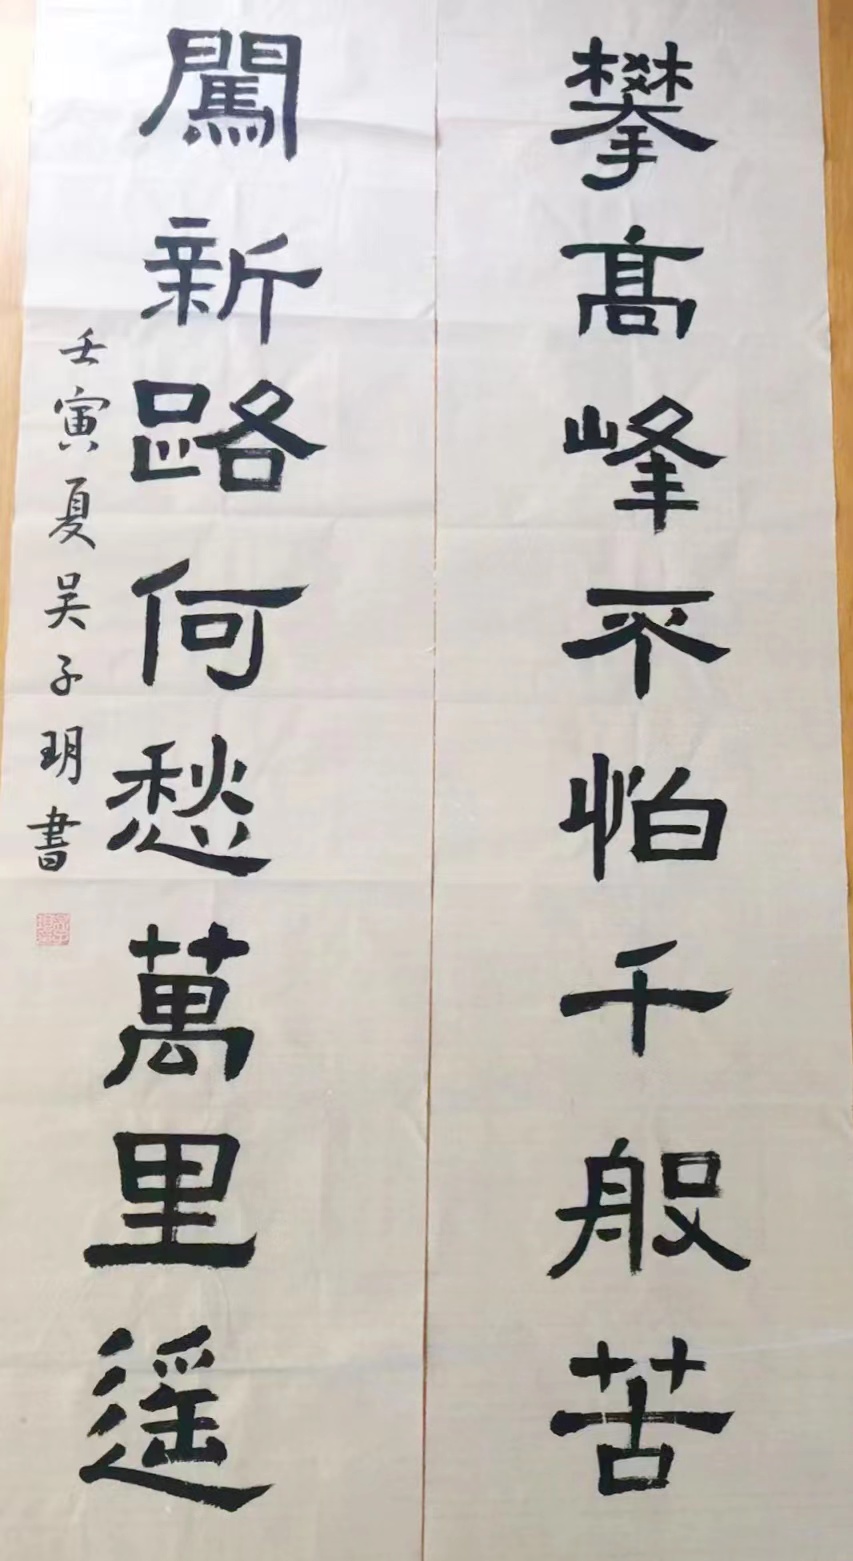 攀高峰不怕千般苦
闖新路何愁萬里遥
壬寅夏吴子玥書